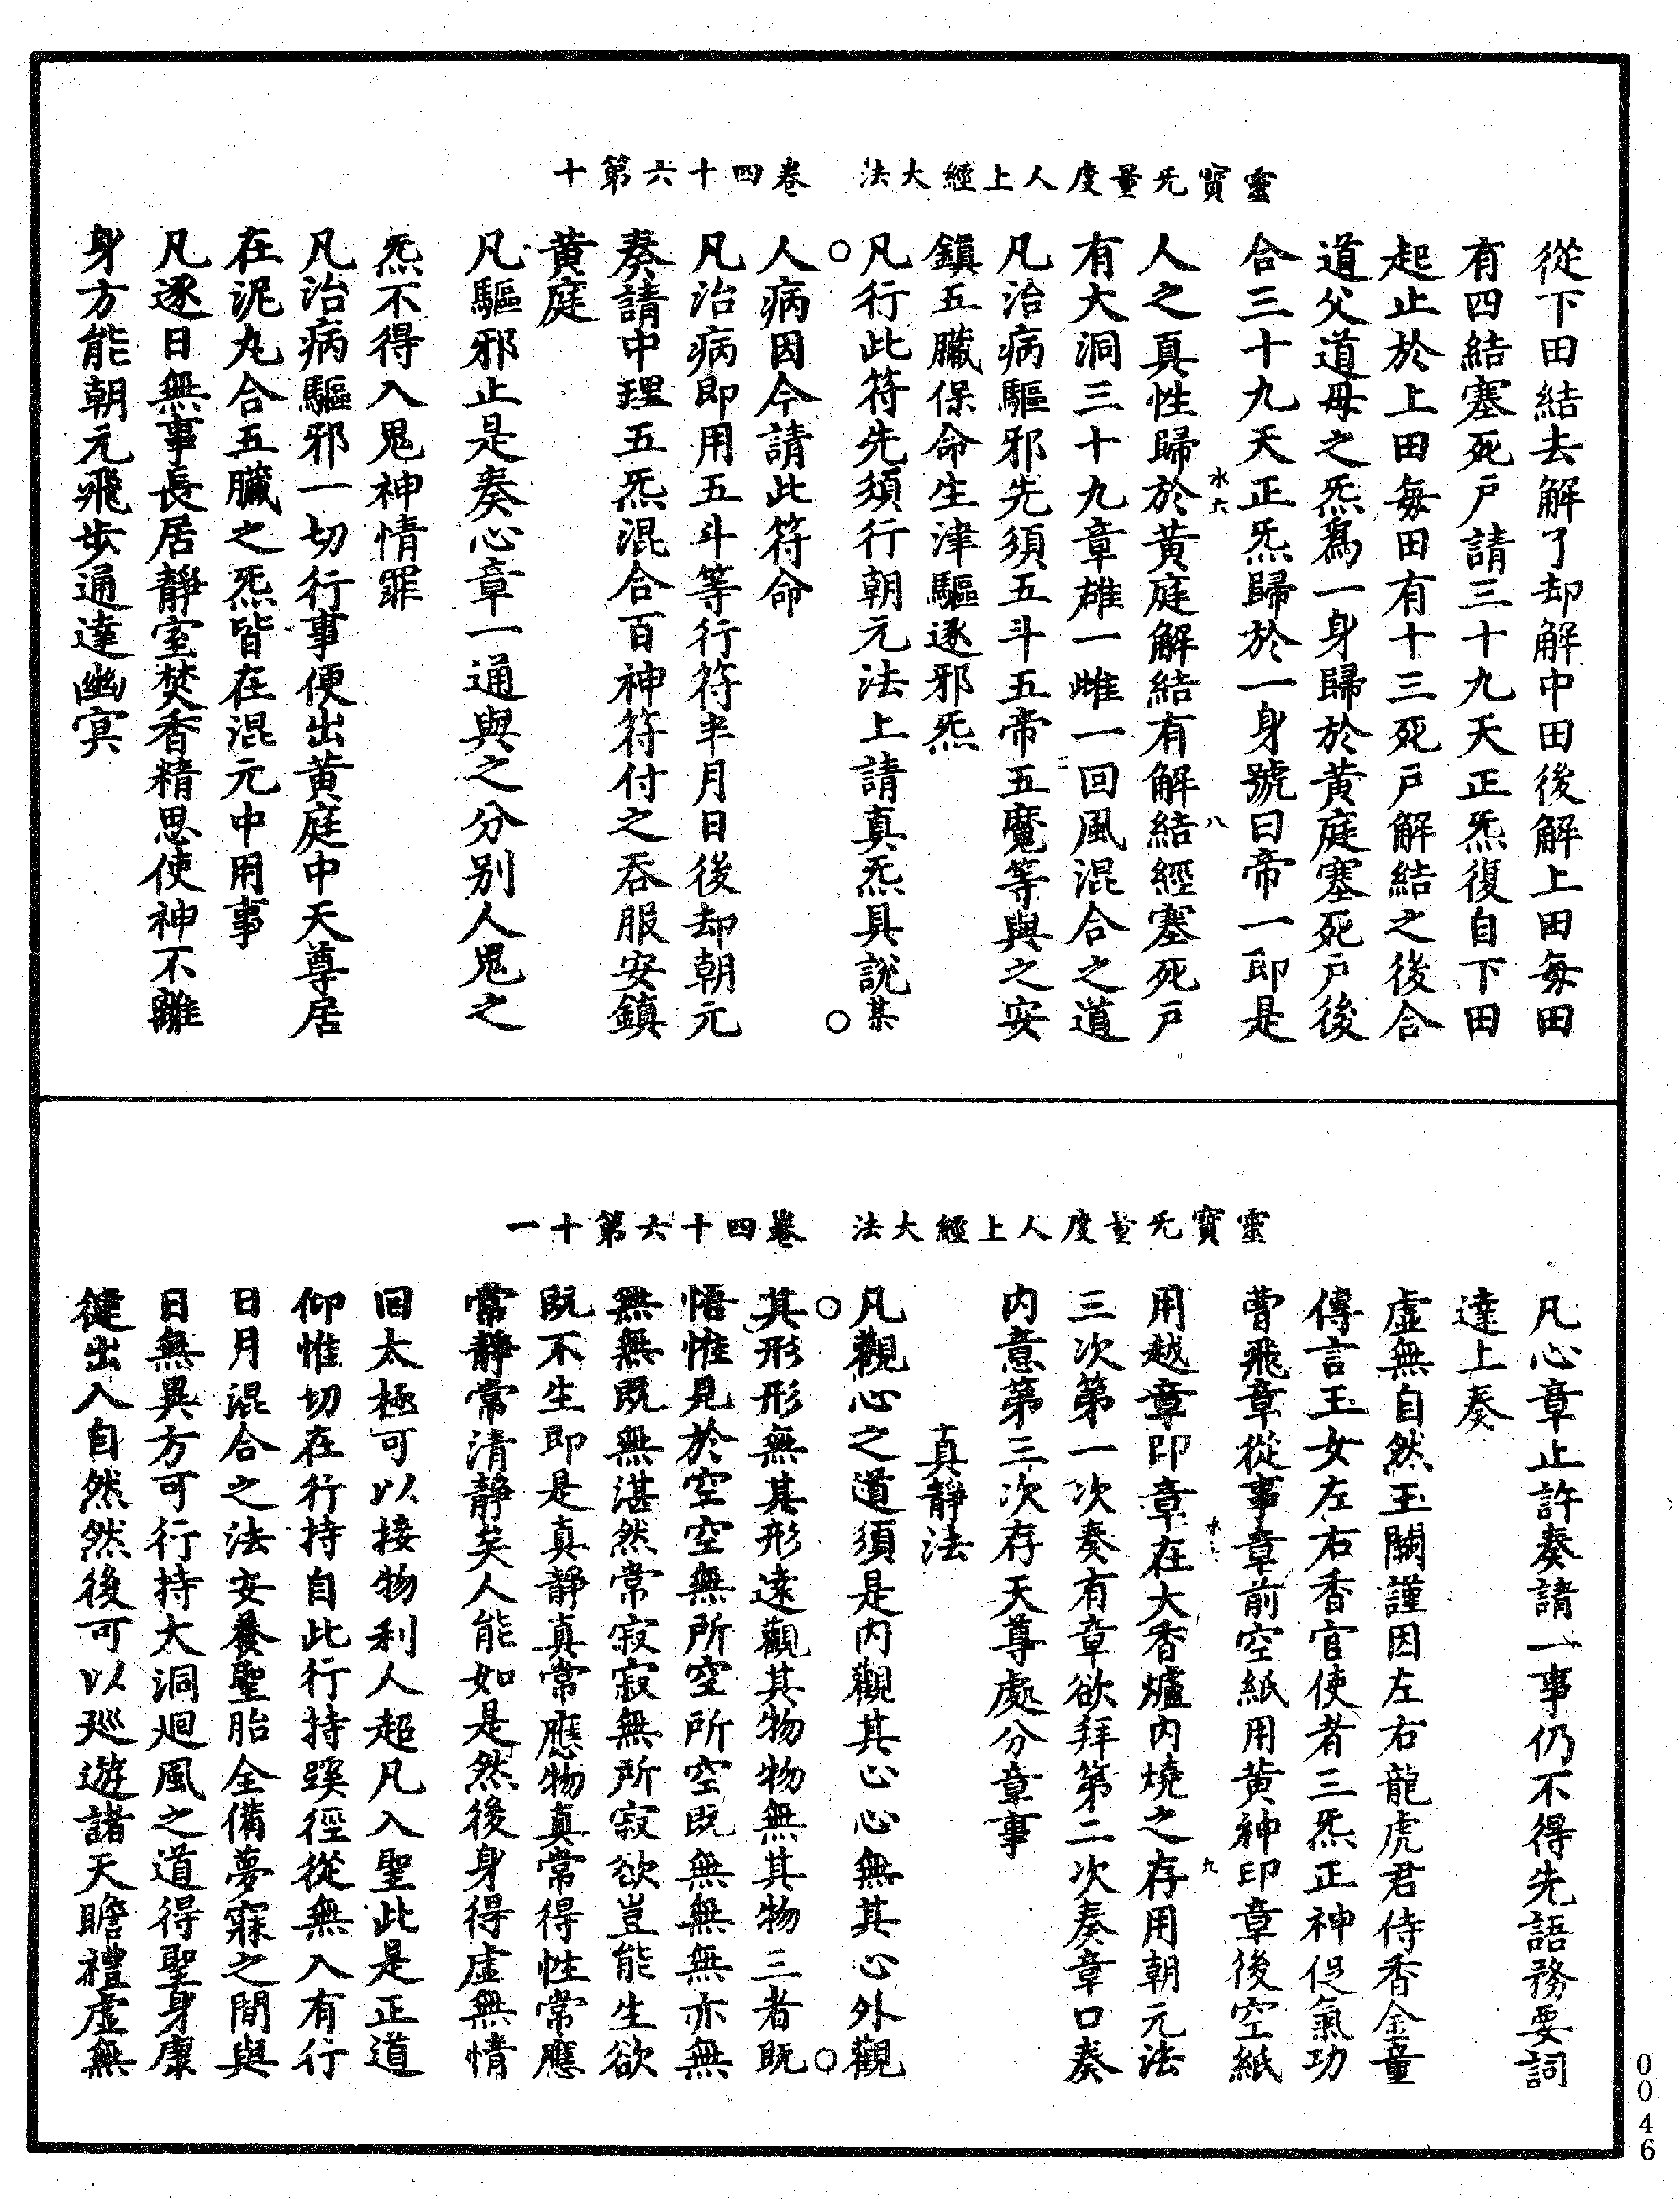 靈寶旡量度人上經大法　卷四十六第十
從下田結去解了却解中田後解上田每田
有四結塞死戶請三十九天正炁復自下田
起止於上田每田有十三死戶解結之後合
道父道母之炁爲一身歸於黃庭塞死戶後
合三十九天正炁歸於一身號曰帝一即是
水六　八
人之真性歸於黃庭解結有解結經塞死戶
有大洞三十九章雄一雌一回風混合之道
凡治病驅邪先須五斗五帝五魔等與之安
鎮五臟保命生津驅逐邪炁
凡行此符先須行朝元法上請真炁具說某
人病因今請此符命
凡治病即用五斗等行符半月日後却朝元
奏請中理五炁混合百神符付之吞服安鎮
黃庭
凡驅邪止是奏心章一通與之分别人鬼之
炁不得入鬼神情罪
凡治病驅邪一切行事便出黃庭中天尊居
在泥丸合五臟之炁皆在混元中用事
凡逐日無事長居靜室焚香精思使神不離
身方能朝元飛步通達幽冥
靈寶旡量度人上經大法　卷四十六第十一
凡心章止許奏請一事仍不得先語務要詞
達上奏
虛無自然玉闕謹因左右龍虎君侍香金童
傳言玉女左右香官使者三炁正神促氣功
曹飛章從事章前空紙用黃神印章後空紙
水　九
用越章印章在大香爐内燒之存用朝元法
三次第一次奏有章欲拜第二次奏章口奏
内意第三次存天尊處分章事
真靜法
凡觀心之道須是内觀其心心無其心外觀
其形形無其形遠觀其物物無其物三者既
悟惟見於空空無所空所空既無無無亦無
無無既無湛然常寂寂無所寂欲豈能生欲
既不生即是真靜真常應物真常得性常應
常靜常清靜矣人能如是然後身得虛無情
回太極可以接物利人超凡入聖此是正道
仰惟切在行持自此行持蹊徑從無入有行
日月混合之法安養聖胎全備夢寐之間與
日無異方可行持大洞迴風之道得聖身康
健出入自然然後可以廵遊諸天瞻禮虛無
0046